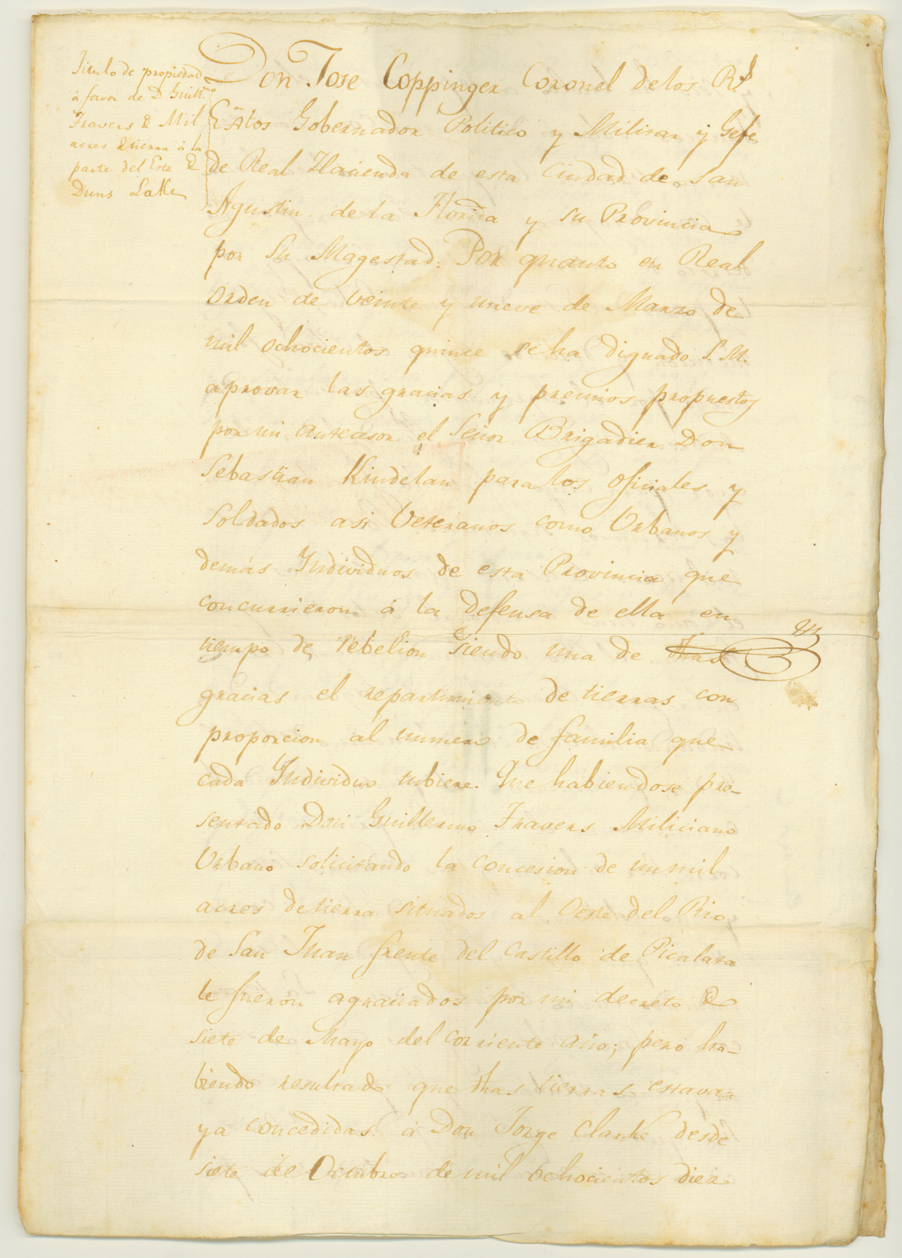 Titulo de propiedad
á favor de D. Guill.mo
Travers d Mil
acres d tierra á la
parte del Este d
Duns Lake
Don Jose Coppinger Coronel de los R.s
Extos Gobernador Politico y Militar y Gefe
de Real Hacienda de esta Ciudad de San
Agustin de la Florida y su Provincia
por Su Magestad. Por quanto en Real
orden de veinte y nueve de Marzo de
mil ochocientos quince se ha dignado S. M.
aprovar las gracias y premios propuestos
por mi antecesor el Señor Brigadier Don
Sebastian Kindelan para los oficiales y
Soldados asi Veteranos como Urbanos y
demas Individuos de esta Provincia que
concurrieron á la defensa de ella en
tiempo de rebelion siendo una de dhas
gracias el repartimiento de tierras con
proporcion al numero de familia que
cada Individuo tubiere. Que habiendose pre-
sentado Don Guillermo Travers Miliciano
Urbano solicitando la concesion de un mil
acres de tierra situados al Oeste del Rio
de San Juan frente del Castillo de Picalata
le fueron agraciados por mi decreto d
siete de Mayo del corriente año; pero ha-
biendo resultado que dhas tierras estavan
ya concedidas á Don Jorge Clarke desde
siete de Octubre de mil ochocientos diez